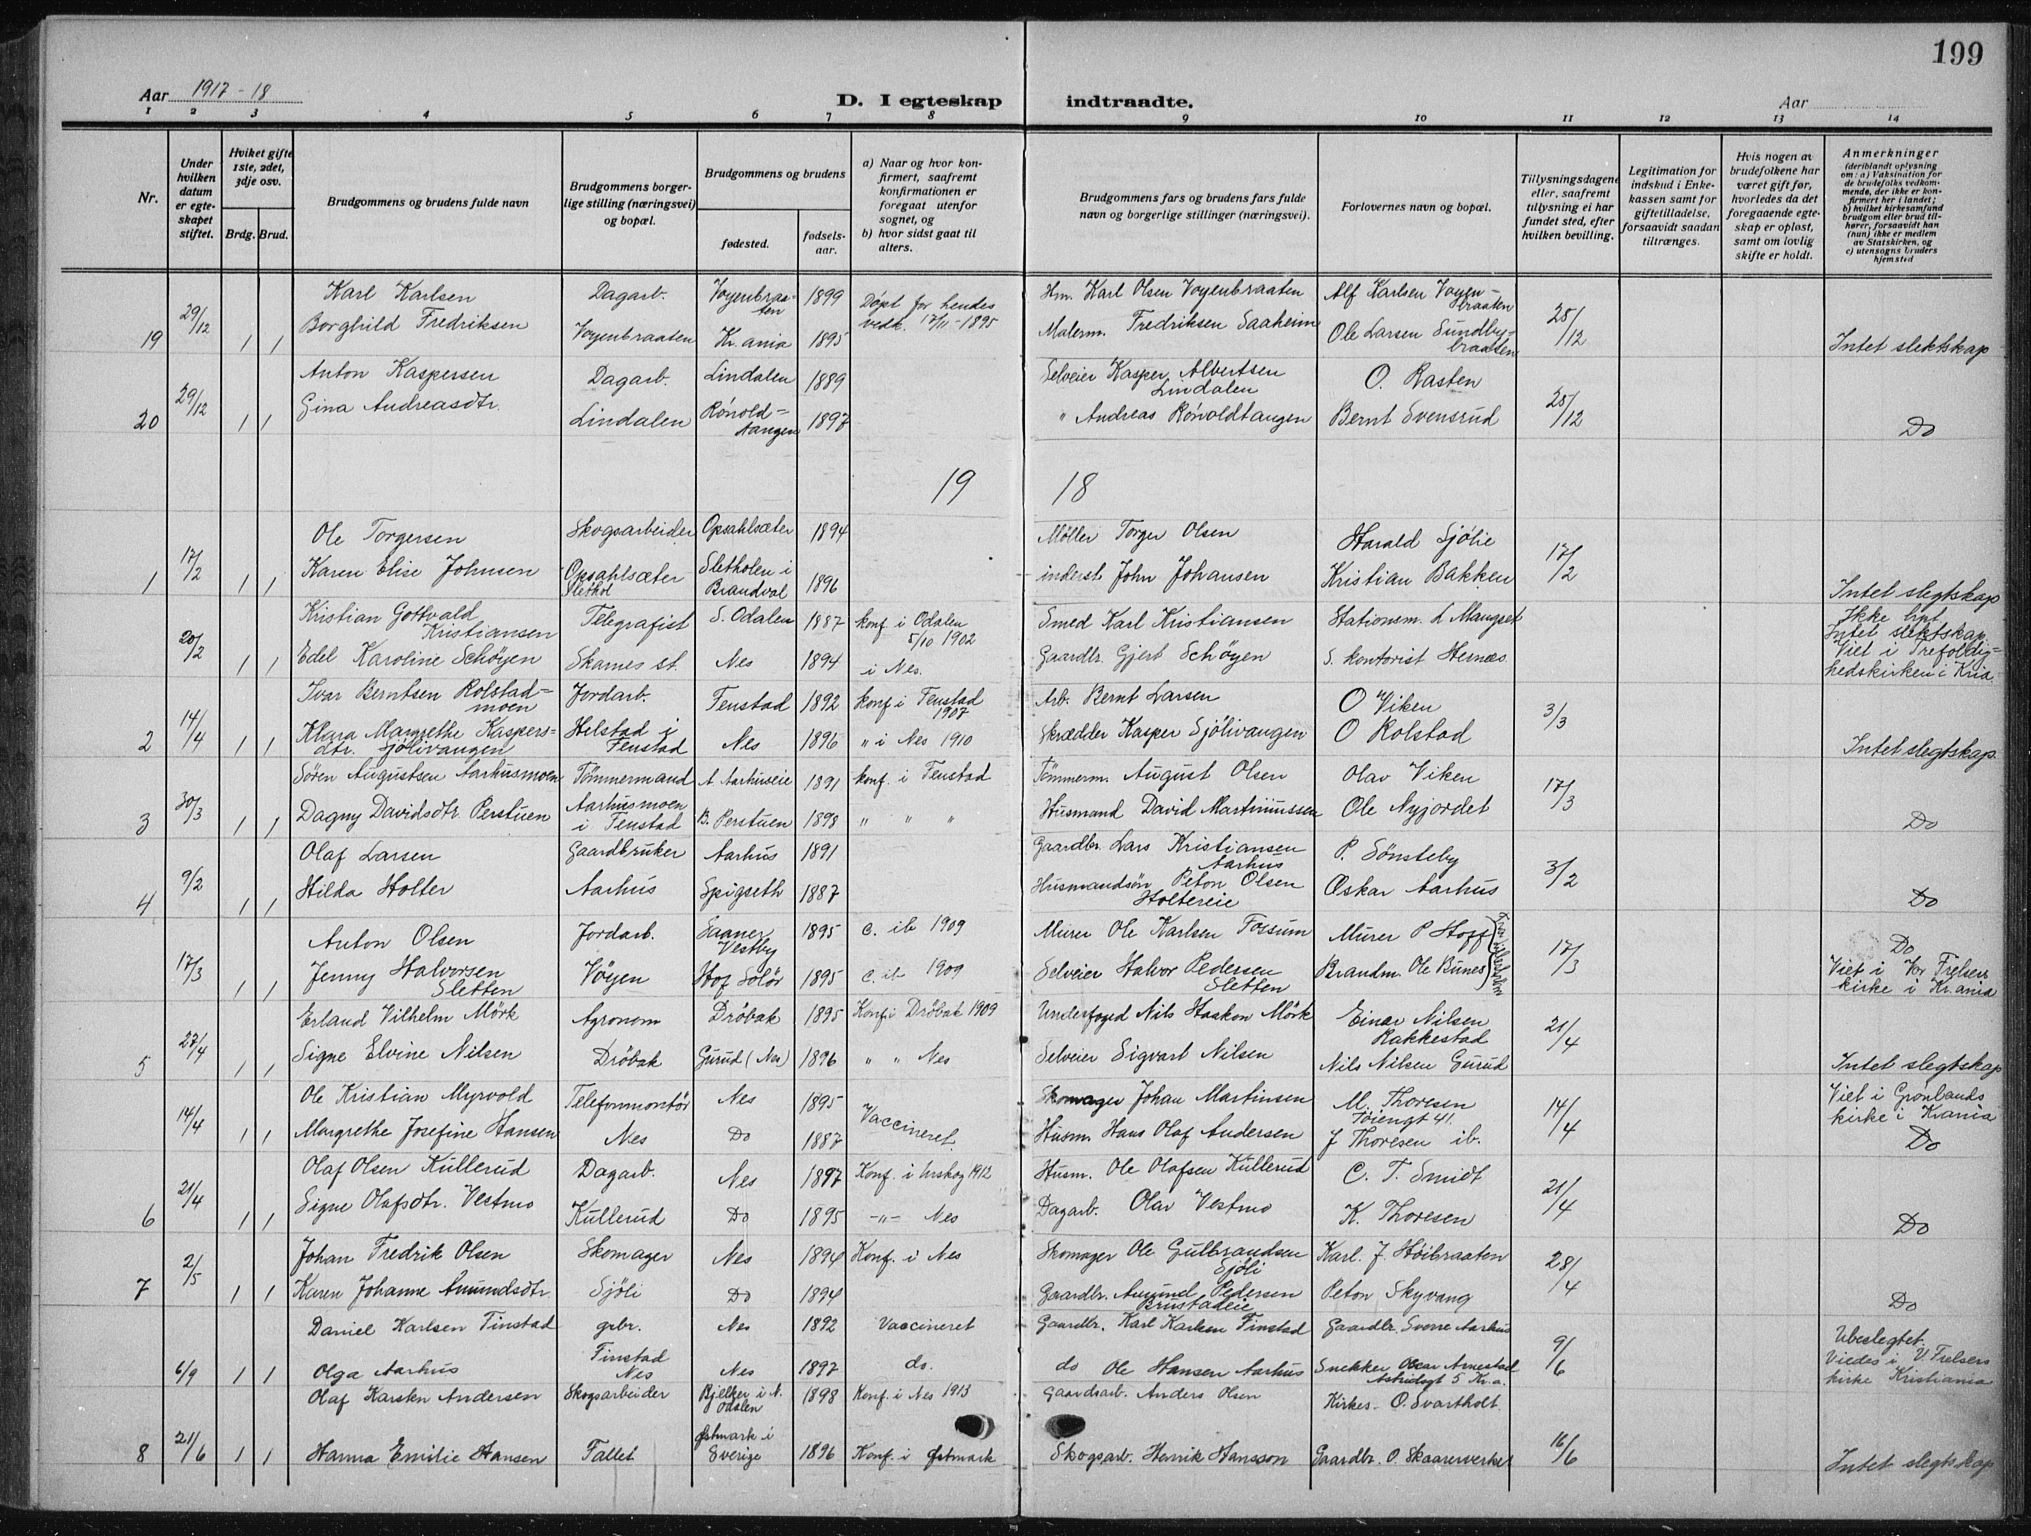 199
Aar 1917-18
D. I egteskap indtraadte.
Aar
1 2 3 4 5 6 7 8 9 10 11 12 13 14
Nr.
Under hvilken datum er egteskapet stiftet.
Hviket gifte 1ste, 2det, 3dje osv.
Brdg. Brud.
Brudgommens og brudens fulde navn
Brudgommens borgerlige stilling (næringsvei) og bopæl.
Brudgommens og brudens
fødested.
fødselsaar.
a) Naar og hvor konfirmert, saafremt konfirmationen er foregaat utenfor sognet, og
b) hvor sidst gaat til alters.
Brudgommens fars og brudens fars fulde navn og borgerlige stillinger (næringsvei).
Forlovernes navn og bopæl.
Tillysningsdagene eller, saafremt tillysning ei har fundet sted, efter hvilken bevilling.
Legitimation for indskud i Enkekassen samt for giftetilladelse, forsaavidt saadan tiltrænges.
Hvis nogen av brudefolkene har været gift før, hvorledes da det foregaaende egteskap er opløst, samt om lovlig skifte er holdt.
Anmerkninger
(deriblandt oplysning om: a) Vaksination for de brudefolks vedkommende, der ikke er konfirmert her i landet;
b) hvilket kirkesamfund brudgom eller brud tilhører, forsaavidt han (hun) ikke er medlem av Statskirken, og
c) utensogns bruders hjemsted
Karl Karlsen Dagarb. Voyenbraaten 1899 Døpt for hendes Hm. Karl Olsen Voyenbraaten Alf Karlsen Voyenbraaten
19 29/12 1 1 Borghild Fredriksen Voyenbraaten Kr.ania 1895 vedk. 17/11-1895 Malerm. Fredriksen Saaheim Ole Larsen Sundbybraatten 25/12 Intet slektskap
Anton Kaspersen Dagarb. Lindalen 1889 Selveier Kasper Albertsen Lindalen O. Rasten
20 29/12 1 1 Gina Andreasdtr. Lindalen Rónoldtangen 1897 " Andreas Rónoldtangen Bernt Svensrud 25/12 Do
19 18
Ole Torgersen Skogsarbeider Opsahlsæter 1894 Møller Torger Olsen Harald Sjølie
1 17/2 1 1 Karen Elise Johnsen Opsahlsæter Slethol Sletholen i Brandval 1896 inderst John Johansen Kristian Bakken 17/2 Intet slegtskap
Kristian Gottvald Kristiansen Telegrafist S. Odalen 1887 konf. i Odalen 5/10 1902 Smed Karl Kristiansen Stationsm. L Mangset Ikke lyst
20/2 1 1 Edel Karoline Schøyen Skarnes st. Nes 1894 i Nes. Gaardbr. Gjert Schøyen S. kontorist Hernæs Intet slektskap. Viet i Trefoldighedskirken i Kria.
Ivar Berntsen Rolstadmoen Jordarb. Fenstad 1892 konf. i Fenstad 1907 Arb. Bernt Larsen O Viken
2 14/4 1 1 Klara Margrethe Kaspersdtr. Sjølivangen Helstad i Fenstad Nes 1896 " i Nes 1910 Skrædder Kasper Sjølivangen O Rolstad 3/3 Intet slegtskap.
Søren Augustsen Aarhusmoen Tømmermand A. Aarhuseie 1891 konf. i Fenstad Tømmerm. August Olsen Olav Viken
3 30/3 1 1 Dagny Davidsdtr. Perstuen Aarhusmoen i Fenstad B. Perstuen 1898 " " " Husmand David Martiniussen Ole Nyjordet 17/3 Do
Olaf Larsen Gaardbruker Aarhus 1891 Gaardbr. Lars Kristiansen Aarhus P. Sønsteby
4 9/2 1 1 Hilda Holter Aarhus Spigseth 1887 Husmandsøn Peton Olsen Holtereie Oskar Aarhus 3/2 Do
Anton Olsen Jordarb. Saaner Vestby 1895 c. ib 1909 Murer Ole Karlsen Fossum Murer P Hoff Do
17/3 1 1 Jenny Halvorsen Sletten Vøyen Hof Solør 1895 c. ib 1909 Selveier Halvor Pedersen Sletten Brandm. Ole Bunes 17/3 Viet i Vor Frelsers kirke i Kr.ania
Erland Vilhelm Mörk Agronom Dröbak 1895 Konf. i Dröbak 1909 Underfoged Nils Haakon Mörk Einar Nilsen Rakkestad
5 27/4 1 1 Signe Elvine Nilsen Dröbak Gurud (Nes) 1896 " " Nes Selveier Sigvart Nilsen Nils Nilsen Gurud 21/4 Intet slegtskap
Ole Kristian Myrvold Telefonmontör Nes 1895 Vaccineret Skomager Johan Martinsen M. Thoresen Tøiengt 41. Viet i Grønlands kirke i Krania
14/4 1 1 Margrethe Josefine Hansen Nes Do 1887 Husm. Hans Olaf Andersen J Thoresen ib. 14/4 Do
Olaf Olsen Kullerud Dagarb. Nes 1897 Konf. i Urskog 1912 Husm. Ole Olafsen Kullerud C. T. Smidt
6 21/4 1 1 Signe Olafsdtr. Vestmo Kullerud Do 1895 -"- Nes Dagarb. Olav Vestmo K. Thoresen 21/4 Do
Johan Fredrik Olsen Skomager Nes 1894 Konf. i Nes Skomager Ole Gulbrandsen Sjøli Karl. J. Høibraaten
7 2/5 1 1 Karen Johanne Amundsdtr. Sjøli Do 1894 Gaardbr. Amund Pedersen Brustadeie Peton Skyvang 28/4 Do
Daniel Karlsen Finstad grbr. Nes 1892 Vaccineret Gaardbr. Karl Karlsen Finstad Gaardbr. Sverre Aarhus Ubeslegtet.
6/9 1 1 Olga Aarhus Finstad Nes Nes 1897 do. do Ole Hansen Aarhus Snekker Oscar Arnestad Astridsgt 5 Kr.a. 9/6 Viedes i V. Frelsers kirke Kristiania
Olaf Karsten Andersen Skogsarbeider Bjelker i N. Odalen 1898 Konf. i Nes 1913 Gaardsarb. Anders Olsen Kirkes. O. Svartholt.
8 21/6 1 1 Hanna Emilie Hansen Fallet Østmark i Sverige 1896 Konf. i Østmark Skogsarb. Henrik Hansson Gaardbr. O. Skaarerverket 16/6 Intet slegtskap